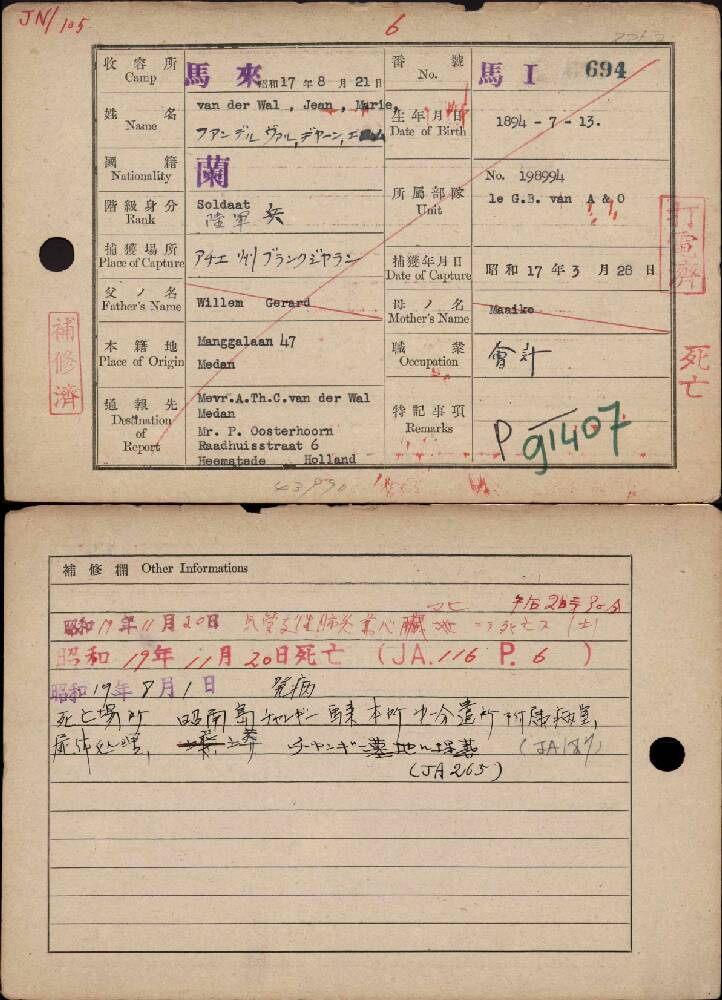 JN/105
6
收容所 Camp
馬來
昭和17年8月21日
番號 No.
馬 I 694
姓名 Name
van der Wal, Jean, Marie,
ファンデル ヴァル, ヂヤーン,
生年月日 Date of Birth
1894-7-13.
國籍 Nationality
蘭
階級身分 Rank
Soldaat
陸軍 兵
所屬部隊 Unit
No. 198994
le G.B. van A & O
捕獲場所 Place of Capture
アチエ州 ブランクジヤラン
捕獲年月日 Date of Capture
昭和17年3月28日
父ノ名 Father's Name
Willem Gerard
母ノ名 Mother's Name
Maaike
本籍地 Place of Origin
Manggalaan 47
Medan
職業 Occupation
會計
通報先 Destination of Report
Mevr.A.Th.C.van der Wal
Medan
Mr. P. Oosterhoorn
Raadhuisstraat 6
Heemstede Holland
特記事項 Remarks
P 91407
打電濟
死亡
補修濟
補修欄 Other Informations
午后2時30分
昭和19年11月20日
昭和19年11月20日死亡 (JA.116 P.6)
昭和19年8月1日 発病
死亡場所 昭南島チャンギー
(JA187)
(JA265)